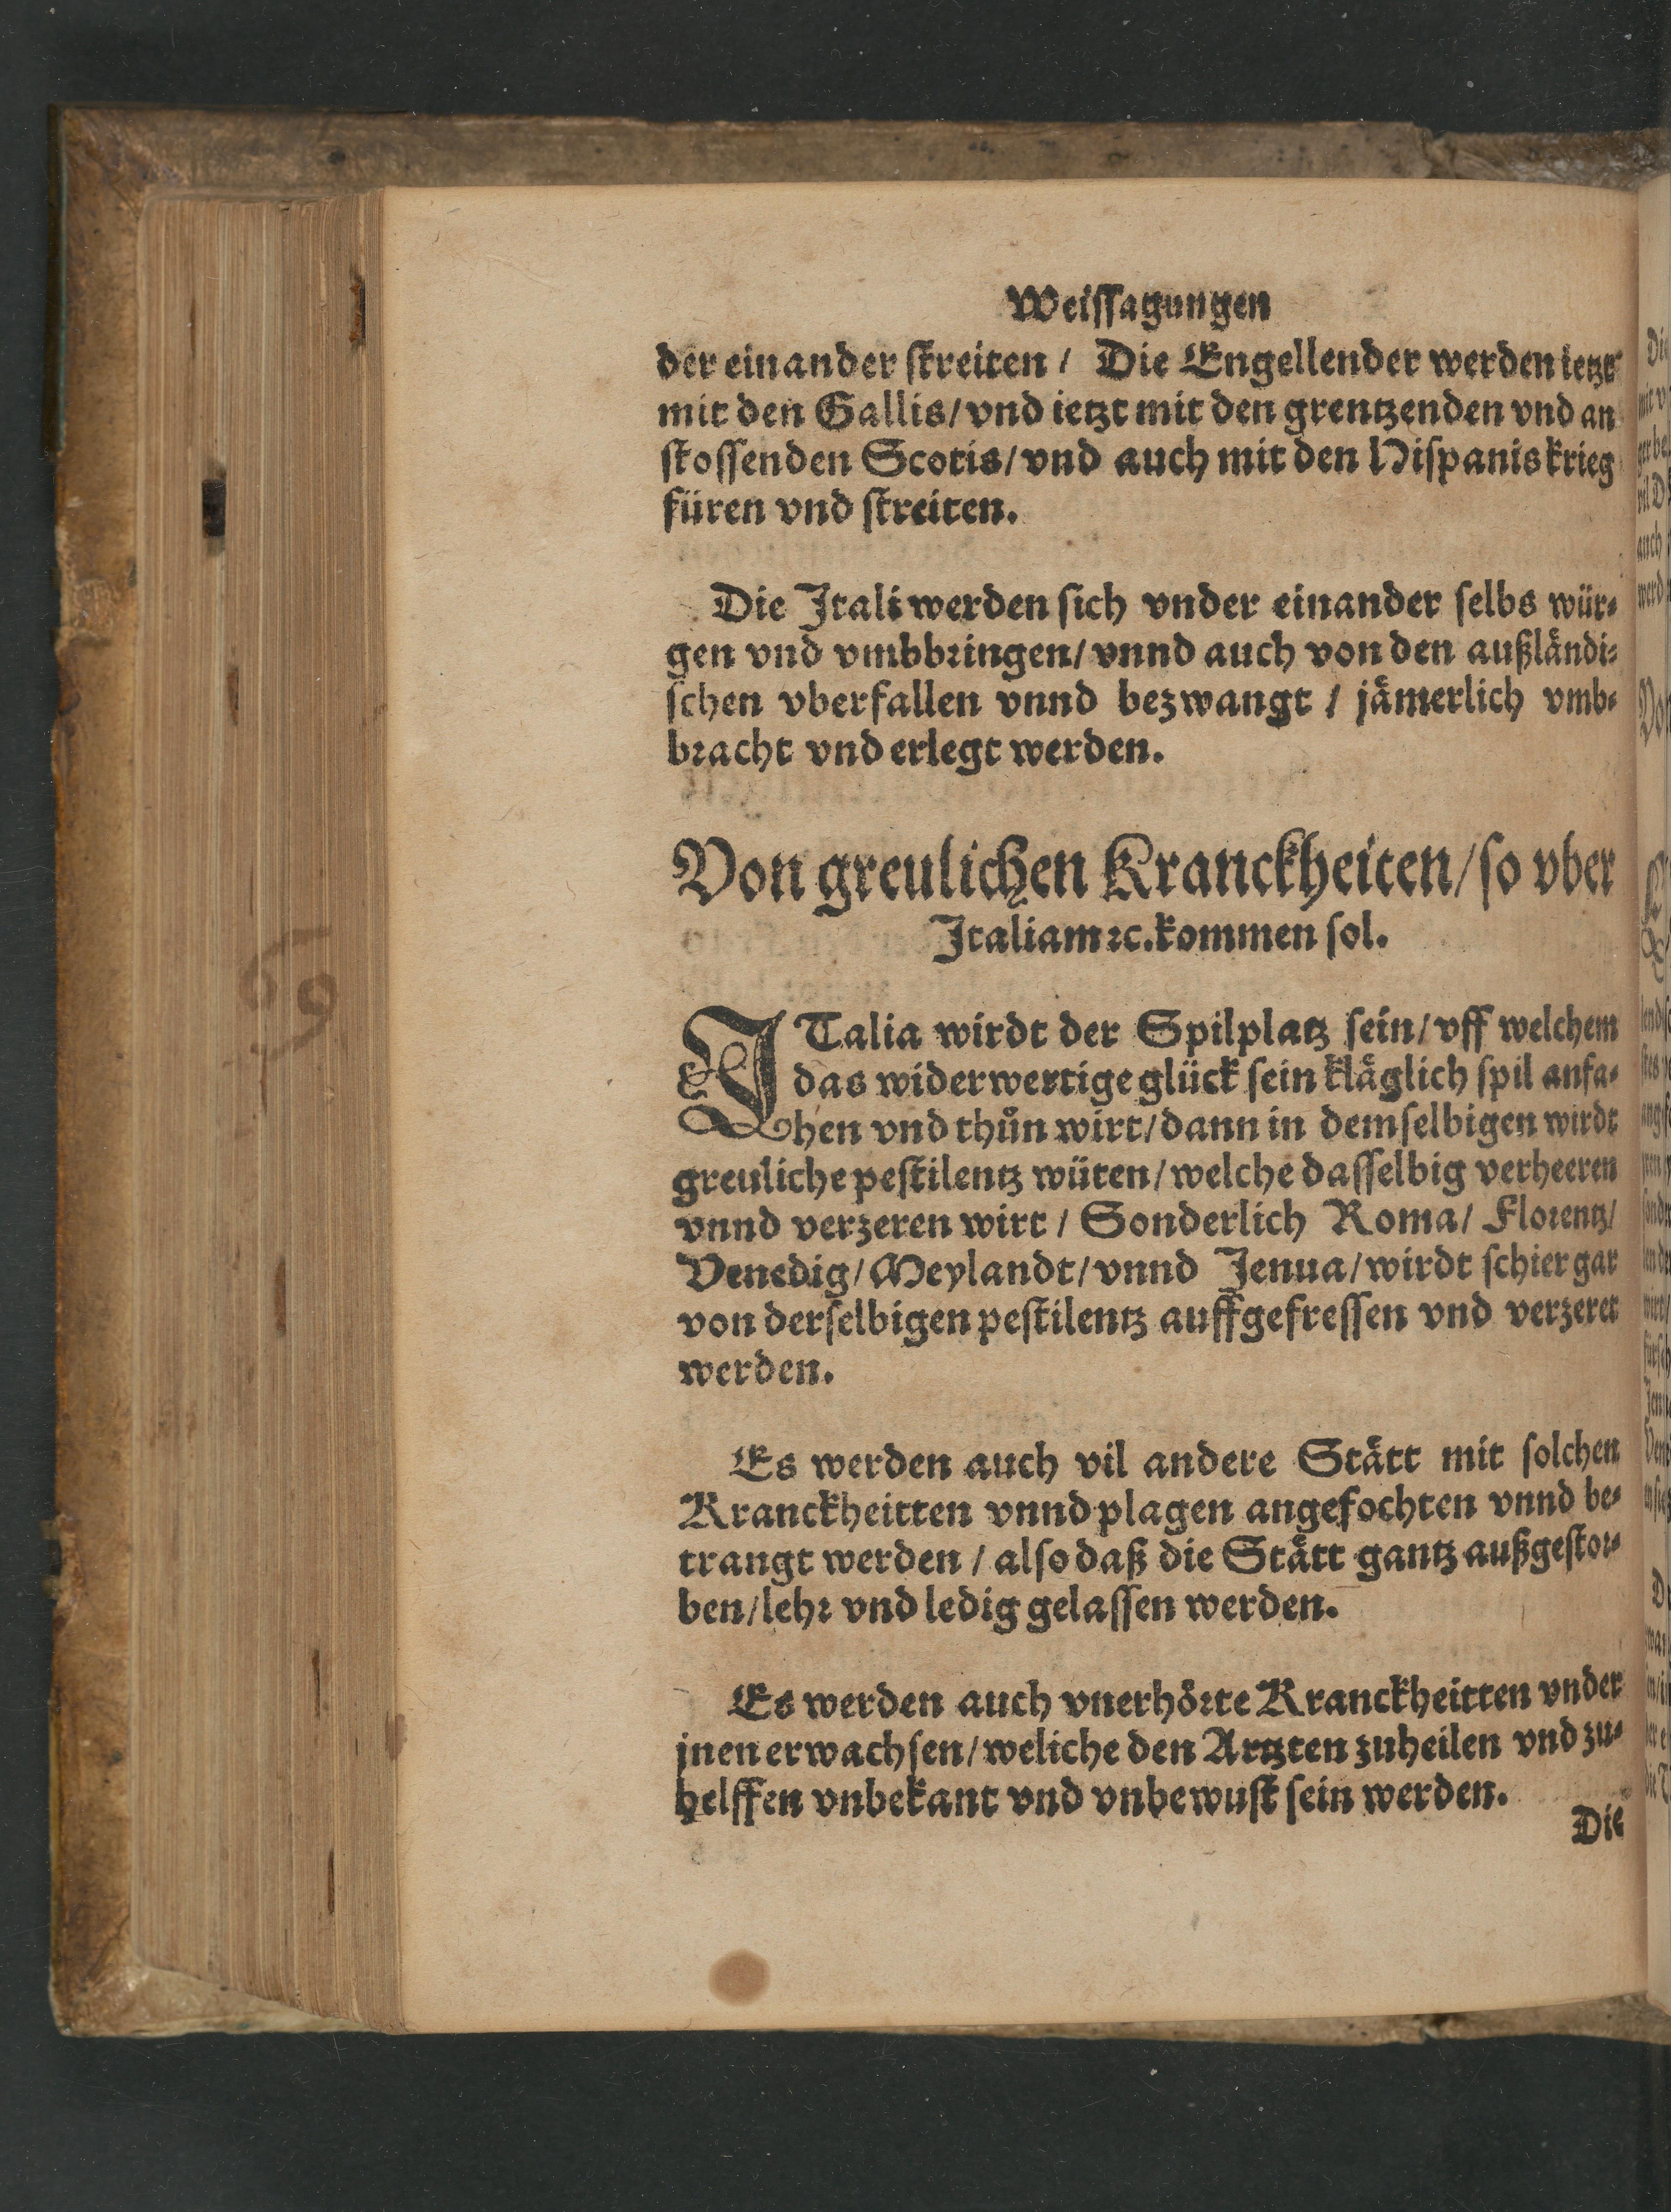 Weiſſagungen
der einander ſtreiten / Die Engellender werden ietzt
mit den Gallis/ vnd ietzt mit den grentzenden vnd an
ſtoſſenden Scotis/ vnd auch mit den Hiſpanis krieg
füren vnd ſtreiten.
Die Itali werden ſich vnder einander ſelbs wür⸗
gen vnd vmbbꝛingen/ vnnd auch von den außländi⸗
ſchen vberfallen vnnd bezwangt / jämerlich vmb⸗
bꝛacht vnd erlegt werden.
Von greulichen Kranckheiten/ ſo vber
Italiam ꝛc. kommen ſol.
ITalia wirdt der Spilplatz ſein/ vff welchem
das widerwertige glück ſein kläglich ſpil anfa⸗
hen vnd thůn wirt/ dann in demſelbigen wirdt
greuliche peſtilentz wüten/ welche daſſelbig verheeren
vnnd verzeren wirt / Sonderlich Roma/ Floꝛentz/
Venedig/ Meylandt/ vnnd Jenua/ wirdt ſchier gar
von derſelbigen peſtilentz auffgefreſſen vnd verzeret
werden.
Es werden auch vil andere Stätt mit ſolchen
Kranckheitten vnnd plagen angefochten vnnd be⸗
trangt werden / alſo daß die Stätt gantz außgeſtoꝛ⸗
ben/ lehꝛ vnd ledig gelaſſen werden.
Es werden auch vnerhöꝛte Kranckheitten vnder
jnen erwachſen/ weliche den Artzten zuheilen vnd zu⸗
helffen vnbekant vnd vnbewuſt ſein werden.
Die
69